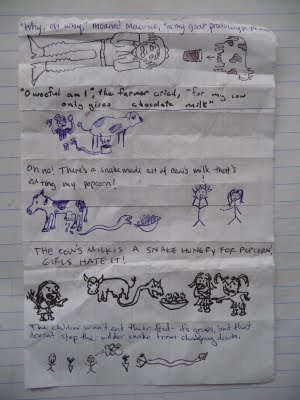 "Why, oh why," moaned Maurice, "is my goat producing
"O woeful am I," the farmer cried, "for my cow
only gives chocolate milk"
Oh no! There's a snake made out of cow's milk that's
eating my popcorn!
THE COW'S MILK IS A SNAKE HUNGRY FOR POPCORN!
GIRLS HATE IT!
The children won't eat their food - it's gross, but that
doesn't stop the udder snake from chomping down.